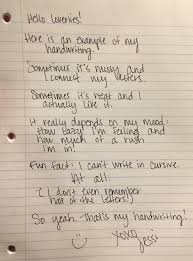 Hello loveries!
Here is an example of my
handwriting.
Sometimes it's messy and
I connect my letters.
Sometimes it's neat and I
actually like it.
It really depends on my mood:
How lazy I'm feeling and
how much of a rush
I'm in!
Fun fact: I can't write in cursive.
At all.
(I don't even remember
half of the letters!)
So yeah. That's my handwriting!
xoxo
Jessi